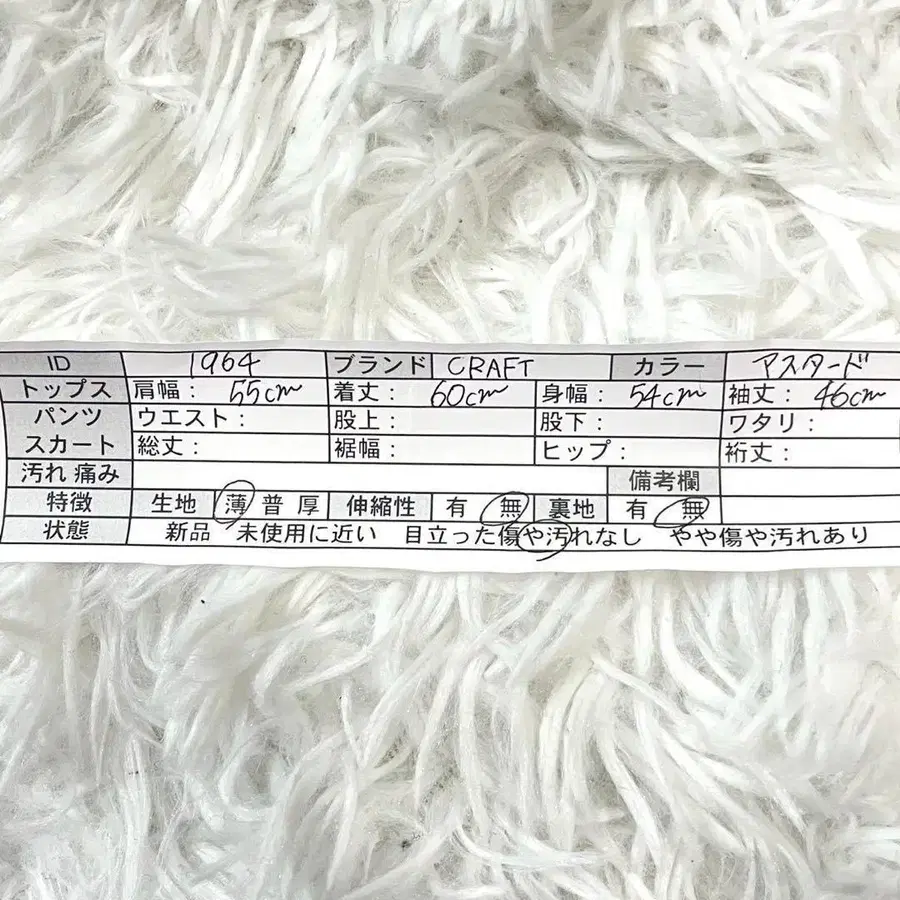 ID 1964 ブランド CRAFT カラー マスタード
トップス 肩幅： 55cm 着丈： 60cm 身幅： 54cm 袖丈： 46cm
パンツ ウエスト： 股上： 股下： ワタリ：
スカート 総丈： 裾幅： ヒップ： 裄丈：
汚れ 痛み 備考欄
特徴 生地 薄 普 厚 伸縮性 有 無 裏地 有 無
状態 新品 未使用に近い 目立った傷や汚れなし やや傷や汚れあり